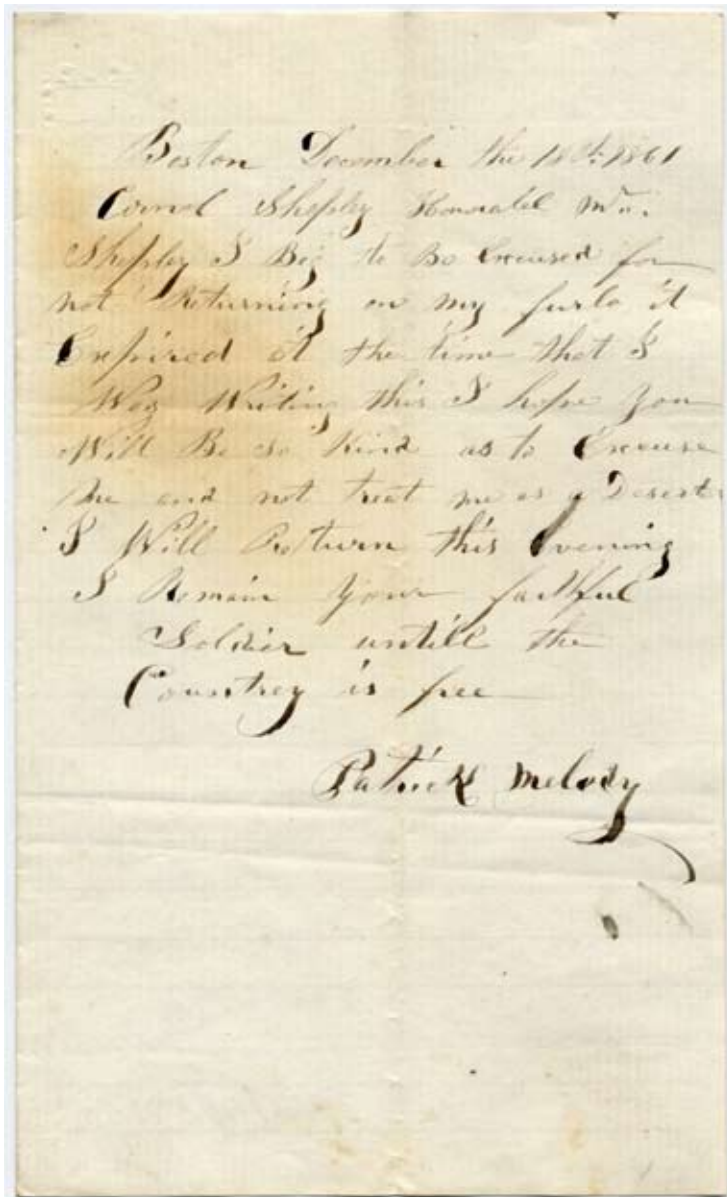 Boston December the 18th 1861
Cornol Shepley Honorabel Mr.
Shepley I Beg to Be Excused for
not Returning on my furlo it
Expired at the time that I
Was Writing this I hope you
Will Be so Kind as to Excuse
me and not treat me as a Deserter
I Will Return this Evening
I Remain your faithful
Soldier untill the
Countrey is free
Patrick Melody